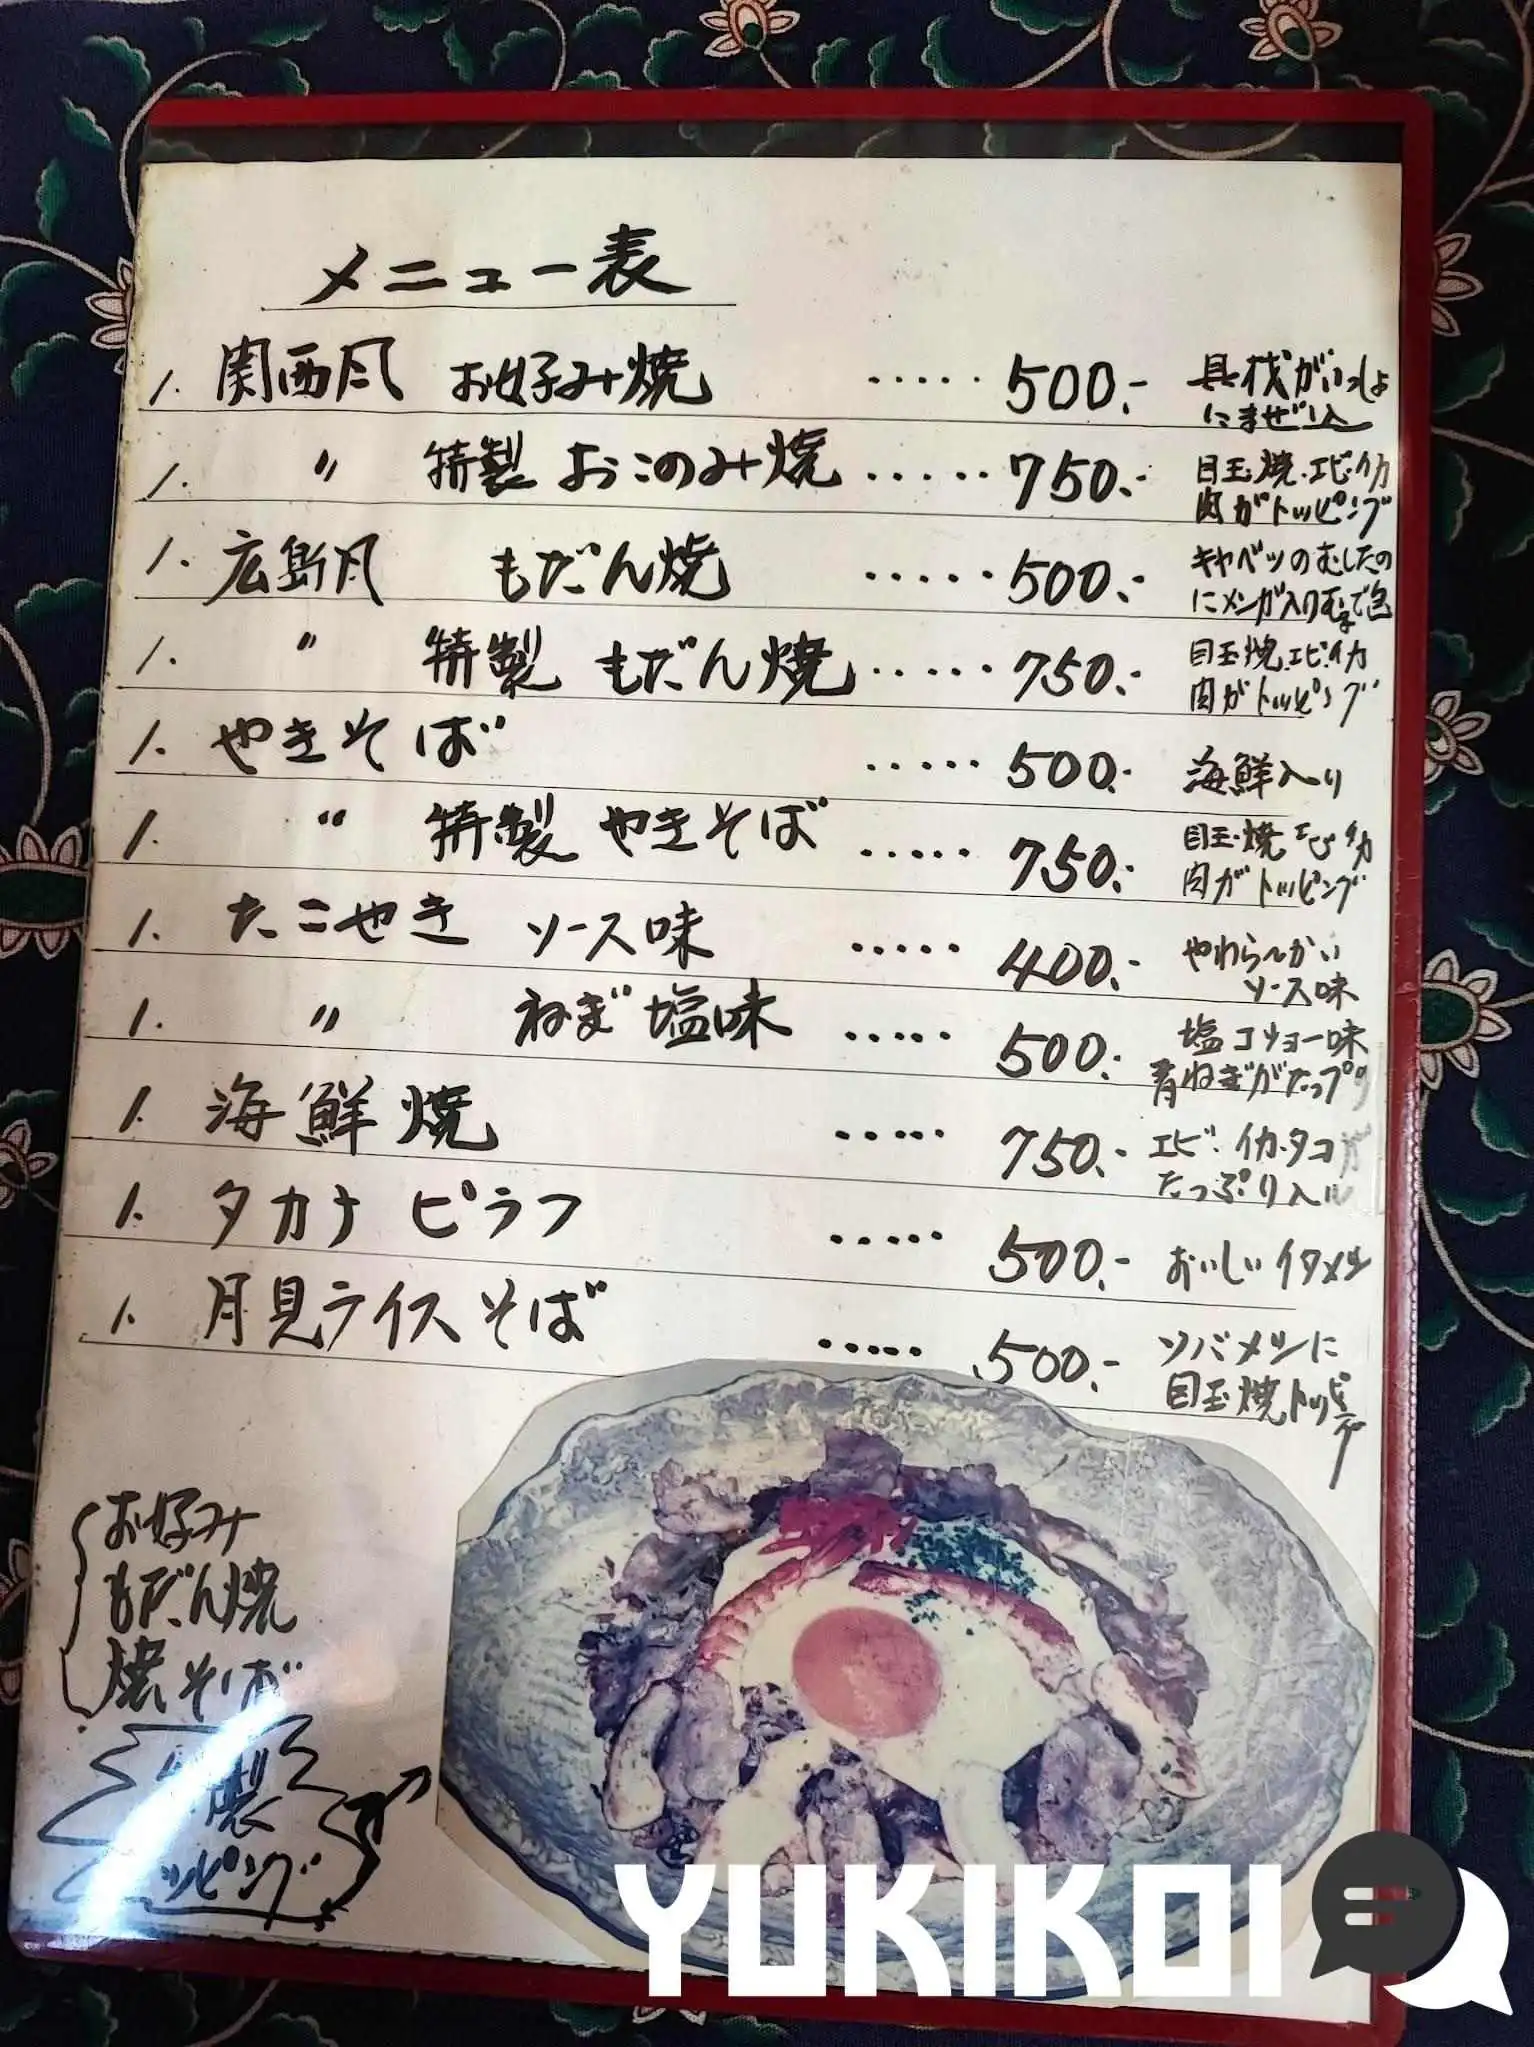 メニュー表
1. 関西風 お好み焼 ..... 500.- 具材がいっしょ
にまぜ込
1. 〃 特製 おこのみ焼 ...... 750.- 目玉焼.エビ.イカ
肉がトッピング
1. 広島風 もだん焼 ...... 500.- キャベツのむしたの
にメンが入り
1. 〃 特製 もだん焼 ...... 750.- 目玉焼.エビ.イカ
肉がトッピング
1. やきそば ..... 500.- 海鮮入り
1. 〃 特製 やきそば ..... 750.- 目玉焼 エビ イカ
肉がトッピング
1. たこやき ソース味 ..... 400.- やわら〜かい
ソース味
1. 〃 ねぎ塩味 ..... 500.- 塩コショー味
青ねぎがたっプリ
1. 海鮮焼 ..... 750.- エビ.イカ.タコが
たっぷり入り
1. タカナ ピラフ ..... 500.- おいしいイタメシ
1. 月見ライスそば ..... 500.- ソバメシに
目玉焼トッピング
お好み
もだん焼
焼そば
製
ッピング
YUKIKOI